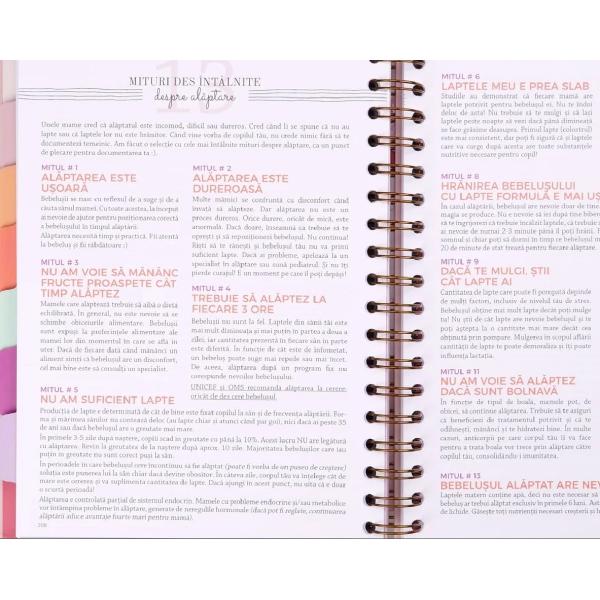 13
MITURI DES ÎNTÂLNITE
despre alăptare
Unele mame cred că alăptatul este incomod, dificil sau dureros. Cred când li se spune că nu au
lapte sau că laptele lor nu este hrănitor. Când vine vorba de copilul tău, nu crede nimic fără să te
documentezi temeinic. Am făcut o selecție cu cele mai întâlnite mituri despre alăptare, ca un punct
de plecare pentru documentarea ta :).
MITUL # 1
ALĂPTAREA ESTE
UȘOARĂ
Bebelușii se nasc cu reflexul de a suge și de a
căuta sânul mamei. Cu toate acestea, la început
ai nevoie de ajutor pentru poziționarea corectă
a bebelușului în timpul alăptării.
Alăptarea necesită timp și practică. Fii atentă
la bebeluș și fii răbdătoare :)
MITUL # 2
ALĂPTAREA ESTE
DUREROASĂ
Multe mămici se confruntă cu disconfort când
învață să alăpteze. Dar alăptarea nu este un
proces dureros. Orice durere, oricât de mică, este
anormală. Dacă doare, înseamnă că trebuie să te
oprești și să repoziționezi bebelușul. Nu continua!
Riști să te rănești și bebelușul tău nu va primi
suficient lapte. Dacă ai probleme, apelează la un
specialist în alăptare sau zonă pediatrică. Și nu îți
pierde curajul! E un moment pe care îl poți depăși!
MITUL # 3
NU AM VOIE SĂ MĂNÂNC
FRUCTE PROASPETE CÂT
TIMP ALĂPTEZ
Mamele care alăptează trebuie să aibă o dietă
echilibrată. În general, nu este nevoie să se
schimbe obiceiurile alimentare. Bebelușii
sunt expuși la preferințele alimentare ale
mamei lor din momentul în care se află în
uter. Dacă de fiecare dată când mănânci un
aliment simți că bebelușul are un disconfort,
cel mai bine este să consulți un specialist.
MITUL # 4
TREBUIE SĂ ALĂPTEZ LA
FIECARE 3 ORE
Bebelușii nu sunt la fel. Laptele din sânii tăi este
mai mult dimineața și mai puțin în partea a doua a
zilei, iar cantitatea prezentă în fiecare sân în parte
este diferită. În funcție de cât este de înfometat,
un bebeluș poate suge mai repede sau mai încet.
De aceea, alăptarea după un program fix nu
corespunde nevoilor bebelușului.
UNICEF și OMS recomandă alăptarea la cerere,
oricât de des cere bebelușul.
MITUL # 5
NU AM SUFICIENT LAPTE
Producția de lapte e determinată de cât de bine este fixat copilul la sân și de frecvența alăptării. For-
ma și mărimea sânilor nu contează deloc (au lapte chiar și atunci când par goi), nici dacă ai peste 35
de ani sau dacă bebelușul are o greutate mai mare.
În primele 3-5 zile după naștere, copiii scad în greutate cu până la 10%. Acest lucru NU are legătură
cu alăptarea. Revin la greutatea de la naștere după aprox. 10 zile. Majoritatea bebelușilor care iau
puțin în greutate nu sunt corect puși la sân.
În perioadele în care bebelușul cere încontinuu să fie alăptat (poate fi vorba de un puseu de creștere)
soluția este punerea lui la sân chiar dacă devine obositor. În câteva zile, corpul tău va înțelege cât de
mare este cererea și va suplimenta cantitatea de lapte. Dacă ajungi în acest punct, nu uita că e doar
o scurtă perioadă!
Alăptarea e controlată parțial de sistemul endocrin. Mamele cu probleme endocrine și/sau metabolice
vor întâmpina probleme în alăptare, generate de neregulile hormonale (dacă pot fi reglate, continuarea
alăptării aduce avantaje foarte mari pentru mamă).
208
MITUL # 6
LAPTELE MEU E PREA SLAB
Studiile au demonstrat că fiecare mamă are
laptele potrivit pentru bebelușul ei. Nu te îndoi
deloc de asta! Nu trebuie să te mulgi și să lași
laptele peste noapte să vezi dacă până dimineață
se face grăsime deasupra. Primul lapte (colostrul)
este mai consistent, dar poți fi sigură că și laptele
care va curge după acesta are toate substanțele
nutritive necesare pentru copil!
MITUL # 8
HRĂNIREA BEBELUȘULUI
CU LAPTE FORMULĂ E MAI UȘ
În cazul alăptării, bebelușul are nevoie doar de
magia se produce. Nu e nevoie să iei după tine bibero
să te îngrijești că trebuie încălzit laptele, că trebuie
ai nevoie de numai 2-3 minute până îl poți hrăni.
somnul e chiar poți să dormi în timp ce bebelușul
20 de minute de stat trează pentru fiecare alăptat.
MITUL # 9
DACĂ TE MULGI, ȘTII
CÂT LAPTE AI
Cantitatea de lapte care poate fi pompată depinde
de mulți factori, inclusiv de nivelul tău de stres.
Bebelușul obține mai mult lapte decât poți mulge
tu! Nu știi cât lapte are nevoie bebelușul și nu te
poți aștepta la o cantitate mai mare decât cea
obținută prin pompare. Mulgerea în scopul aflării
cantității de lapte te poate demoraliza și îți poate
influența lactația.
MITUL # 11
NU AM VOIE SĂ ALĂPTEZ
DACĂ SUNT BOLNAVĂ
În funcție de tipul de boală, mamele pot, de
obicei, să continue alăptarea. Trebuie să te asiguri
că beneficiezi de tratamentul potrivit și că te
odihnești, mănânci și te hidratezi bine. În multe
cazuri, anticorpii pe care corpul tău îi va face
pentru a trata boala vor trece prin alăptare către
copilul tău, consolidându-i imunitatea.
MITUL # 13
BEBELUȘUL ALĂPTAT ARE NEV
Laptele matern conține apă, deci nu este necesar să
bebelușul trebui alăptat exclusiv în primele 6 luni. Ast
de lichide. Găsește toți nutrienții necesari creșterii și